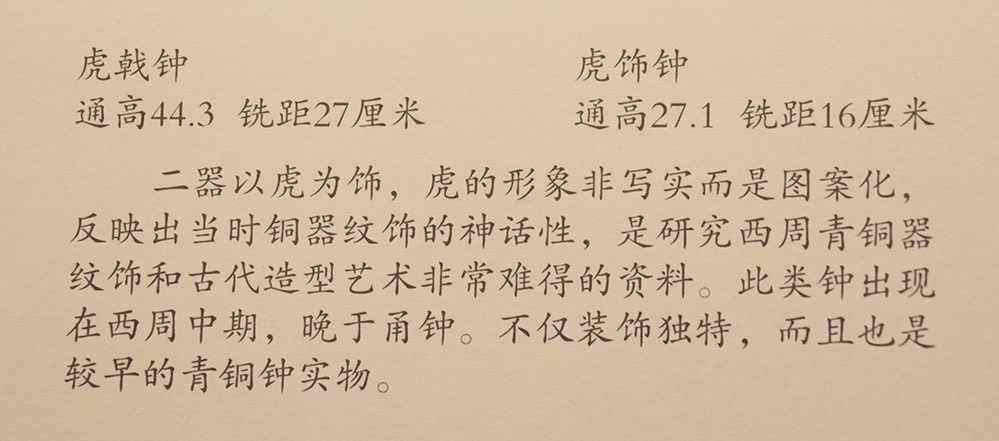 虎戟钟
通高44.3 铣距27厘米
虎饰钟
通高27.1 铣距16厘米
二器以虎为饰，虎的形象非写实而是图案化，
反映出当时铜器纹饰的神话性，是研究西周青铜器
纹饰和古代造型艺术非常难得的资料。此类钟出现
在西周中期，晚于甬钟。不仅装饰独特，而且也是
较早的青铜钟实物。